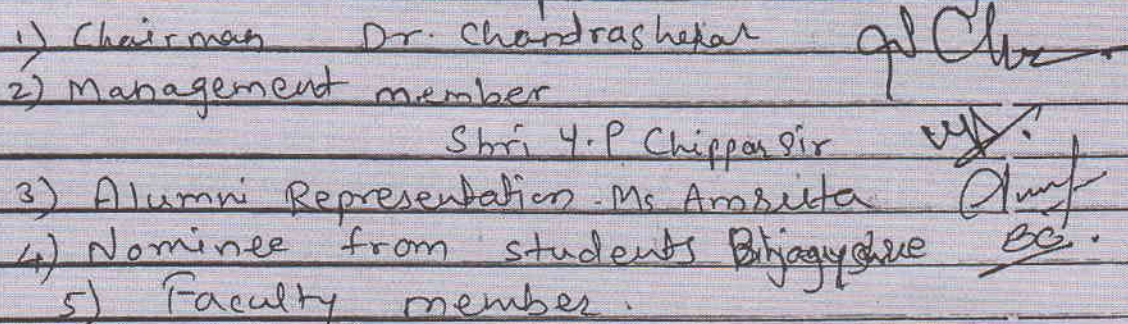 1) Chairman Dr. Chandrashekar
2) Management member
Shri Y.P Chippar sir
3) Alumni Representation - Ms Amruta
4) Nominee from students
5) Faculty member.